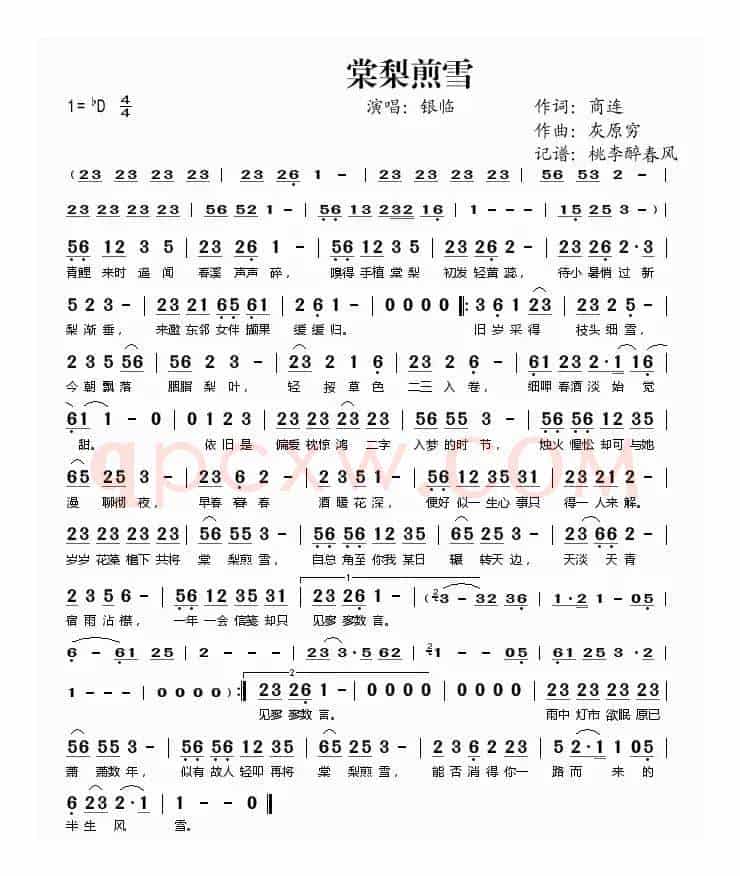 棠梨煎雪
1=♭D 4/4 演唱：银临 作词：商连
作曲：灰原穷
记谱：桃李醉春风
(23 23 23 23 | 23 26 1 - | 23 23 23 23 | 56 53 2 - |
23 23 23 23 | 56 52 1 - | 56 13 232 16 | 1 - - - | 15 25 3 - )|
56 12 3 5 | 23 26 1 - | 56 12 35 | 23 26 1 - | 23 26 2·3 |
青鲤来时遥闻 春溪声声碎， 嗅得手植棠梨 初发轻黄蕊， 待小暑悄过新
5 2 3 - | 23 21 65 61 | 2 6 1 - | 0 0 0 0 |: 3 6 1 23 | 2 3 5 - |
梨渐垂， 来邀东邻女伴撷果 缓缓归。 旧岁采得 枝头细雪，
2 3 5 56 | 56 2 3 - | 23 2 1 6 | 2 3 2 - | 61 23 2·1 | 1 16
今朝飘落 胭脂梨叶， 轻挼草色 二三入卷， 细呷春酒淡始觉
61 1 - 0 | 0 1 2 3 | 23 56 23 23 | 56 55 3 - | 56 56 12 35 |
甜。 依旧是 偏爱枕惊鸿二字 入梦的时节， 烛火惺忪却可与她
65 25 3 - | 23 6 2 - | 2 3 5 1 | 56 12 35 31 | 2 3 2 - |
漫聊彻夜， 早春暮春 酒暖花深， 便好似一生心事只 得一人来解。
23 23 23 23 | 56 55 3 - | 56 56 12 35 | 65 25 3 - | 23 66 2 - |
岁岁花藻檐下共将 棠梨煎雪， 自总角至你我某日 辗转天边， 天淡天青
2 3 5 6 - | 56 12 35 31 | 23 26 1 - | (3 - 32 36 | 1·2 1 - 05 |
宿雨沾襟， 一年一会信笺却只 见寥寥数言。
6 - 61 25 | 2 - - - | 23 3·5 62 | 1 - - 05 | 61 25 3 - |
1 - - - | 0 0 0 0 ):| 23 26 1 - | 0 0 0 0 | 0 0 0 0 | 23 23 23 23 |
见寥寥数言。 雨中灯市欲眠原已
56 55 3 - | 56 56 12 35 | 65 25 3 - | 2 3 6 23 | 5 2·1 1 05 |
萧萧数年， 似有故人轻叩再将 棠梨煎雪， 能否消得你一 路而来的
6 23 2·1 | 1 - - 0 ‖
半生风 雪。
qpcxw.com